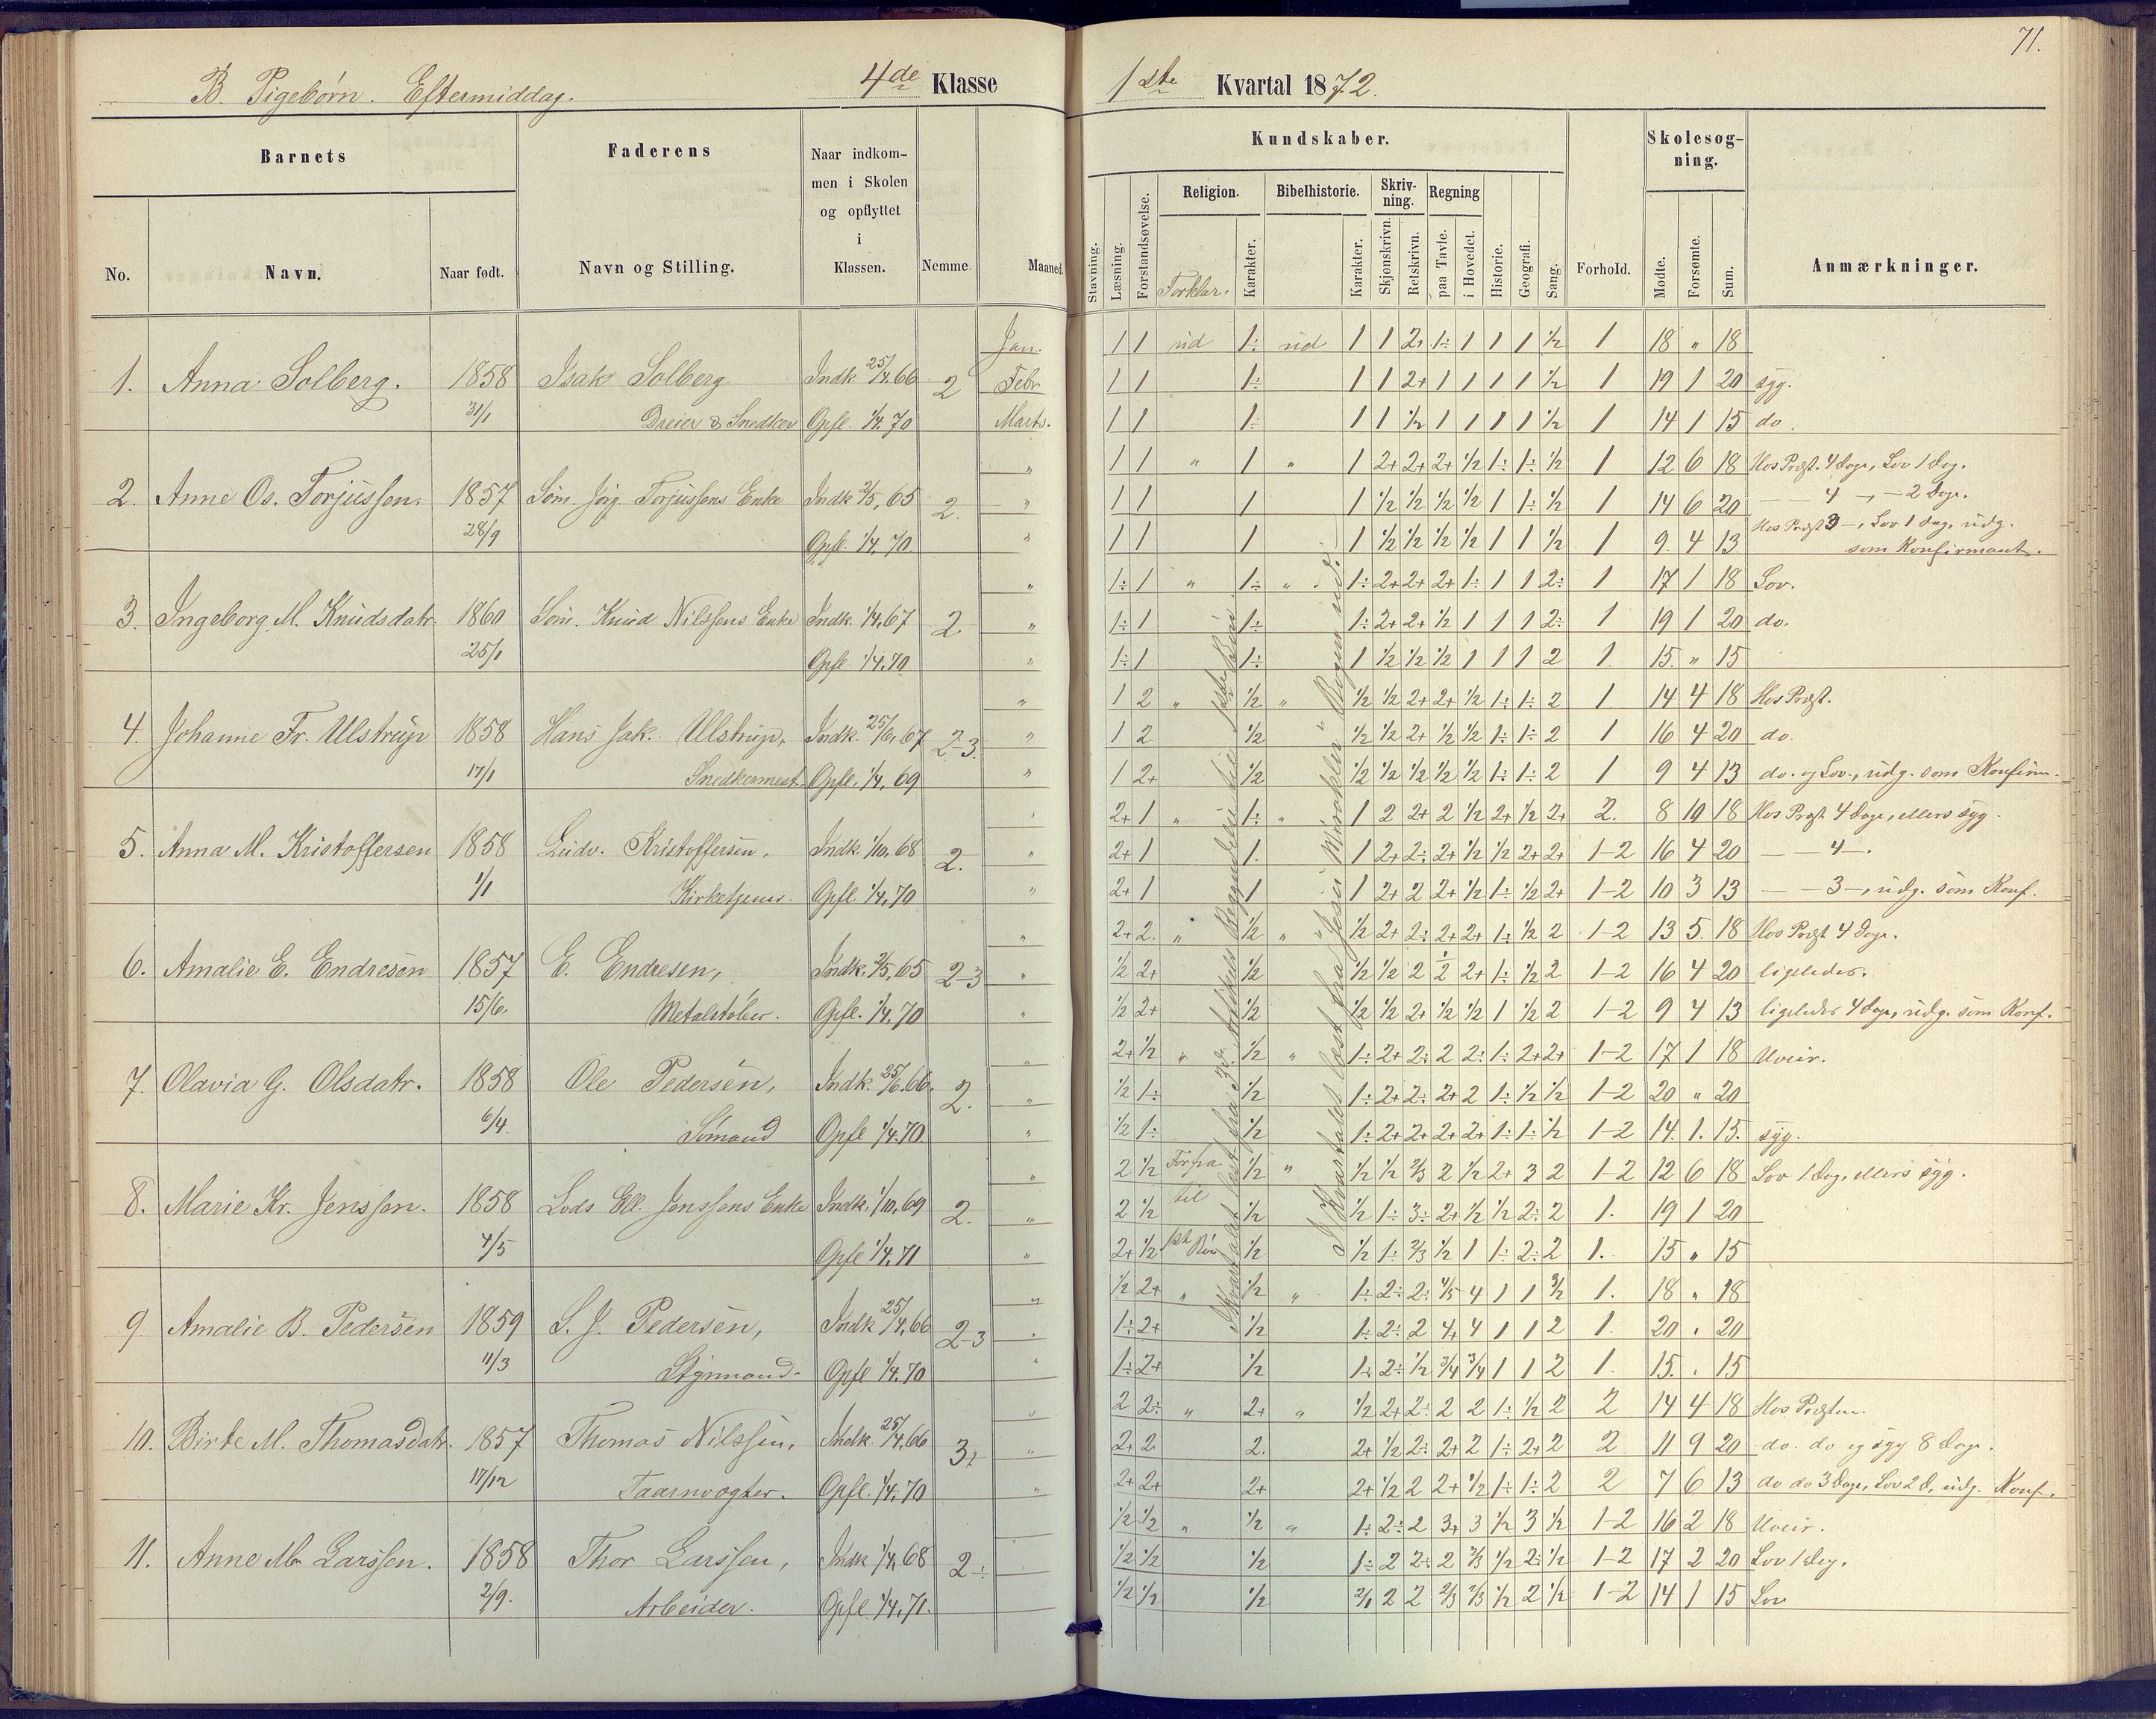 71.
B. Pigebørn. Eftermiddag. 4de Klasse 1ste Kvartal 1872.
Barnets Faderens Naar indkommen i Skolen og opflyttet i Klassen. Nemme. Maaned.
No. Navn. Naar født. Navn og Stilling.
Kundskaber. Forhold. Skolesøgning. Anmærkninger.
Stavning. Læsning. Forstandsøvelse. Religion. Forklar. Karakter. Bibelhistorie. Karakter. Skrivning. Skjønskrivn. Retskrivn. Regning paa Tavle. i Hovedet. Historie. Geografi. Sang. Mødte. Forsømte. Sum.
Jan. 1 1 ud 1÷ ud 1 1 2+ 1÷ 1 1 1 ½ 1 18 " 18
1. Anna Solberg. 1858 Isak Solberg Indk. 25/4.66 2 Febr 1 1 1÷ 1 1 2+ 1 1 1 1 ½ 1 19 1 20 syg.
31/1 Dreier & Snedker Opfl. 1/4.70 Marts. 1 1 1÷ 1 1 ½ 1 1 1 1 ½ 1 14 1 15 do.
" 1 1 " 1 " 1 2+ 2+ 2+ ½ 1÷ 1÷ ½ 1 12 6 18 Hos Præst. 4 Dage, Lov 1 Dag.
2. Anne Os. Torjussen. 1857 Søm. Jørg. Torjussens Enke Indk 2/5, 65 2. " 1 1 1 1 ½ ½ ½ ½ 1 1÷ ½ 1 14 6 20 — 4 —, — 2 Dage.
28/9 Opfl. 1/4, 70. " 1 1 1 1 ½ ½ ½ ½ 1 1 ½ 1 9. 4 13 Hos Præst 3 —, Lov 1 Dag, udg.
som Konfirmant.
" 1÷ 1 " 1÷ " 1÷ 2+ 2+ 2+ 1÷ 1 1 2÷ 1 17 1 18 Lov.
3. Ingeborg M. Knudsdatr. 1860 Søm. Knud Nilssens Enke Indk. 1/4,67 2. " 1÷ 1 1÷ 1÷ 2+ 2+ ½ 1 1 1 2÷ 1 19 1 20 do.
25/1 Opfl. 1/4.70 " 1÷ 1 1÷ 1 ½ ½ ½ 1 1 1 2 1. 15. " 15
" 1 2 " ½ " ½ ½ 2+ 2+ ½ 1÷ 1÷ 2 1 14 4 18 Hos Præst.
4. Johanne Fr. Ulstrup 1858 Hans Jak. Ulstrup, Indk. 25/6, 67 2-3. " 1 2 ½ ½ ½ 2+ ½ ½ 1÷ 1÷ 2 1 16 4 20 do.
17/1 Snedkermest. Opfl. 1/4, 69 " 1 2+ ½ ½ ½ ½ ½ ½ 1÷ 1÷ 2 1 9 4 13 do. og Lov., udg. som Konfirm.
" 2+ 1 " 1÷ " 1 2 2+ 2 ½ 2+ ½ 2+ 2. 8 10 18 Hos Præst 4 Dage, ellers syg.
5. Anna M. Kristoffersen 1858 Ludv. Kristoffersen, Indk. 1/10, 68 2. " 2+ 1 1. 1 2+ 2÷ 2+ ½ ½ 2+ 2+ 1-2 16 4 20 — 4 —.
1/1 Kirketjener. Opfl 1/4, 70 " 2+ 1 1 1 2+ 2 2+ ½ 1÷ ½ 2+ 1-2 10 3 13 — 3 —, udg. som Konf.
" 2+ 2. " ½ " ½ 2+ 2÷ 2+ 2+ 1÷ ½ 2 1-2 13 5. 18 Hos Præst 4 Dage.
6. Amalie E. Endresen 1857 E. Endresen, Indk. 2/5, 65 2-3 " ½ 2+ ½ ½ ½ 2 ½ 2+ 1÷ ½ 2 1-2 16 4 20 ligeledes.
15/6. Metalstøber. Opfl. 1/4, 70 " ½ 2+ ½ ½ ½ 2+ ½ ½ 1 ½ 2 1-2 9 4 13 ligeledes 4 Dage, udg. som Konf.
" 2+ ½ " ½ " 1÷ 2+ 2÷ 2 2÷ 1÷ 2+ 2+ 1-2 17 1 18 Uveir.
7. Olavia G. Olsdatr. 1858 Ole Pedersen, Indk. 25/6.66. 2. " ½ 1÷ ½ 1÷ 2+ 2÷ 2+ 2 1÷ ½ ½ 1-2 20 " 20
6/4. Sømand Opfl 1/4.70. " ½ 1÷ ½ 1÷ 2+ 2+ 2+ 2+ 1÷ 1÷ ½ 1-2 14. 1. 15. syg.
" 2 ½ ½ " ½ ½ 2/3 2 ½ 2+ 3 2 1-2 12 6 18 Lov 1 Dag, ellers syg.
8. Marie Kr. Jenssen. 1858 Lods Ell. Jenssens Enke Indk. 1/10, 69 2. " 2 ½ til ½ ½ 1÷ 3÷ 2+ ½ ½ 2÷ 2 1. 19 1 20
4/5 Opfl 1/4.71 " 2+ ½ ½ ½ 1÷ 2/3 ½ 1 1÷ 2÷ 2 1. 15 " 15
" ½ 2+ " ½ " 1÷ 2÷ 2÷ 4/5 4 1 1 3/2 1. 18 " 18
9. Amalie B. Pedersen 1859 S. J. Pedersen, Indk 25/4, 66 2-3 " 1÷ 2+ ½ 1÷ 2÷ 2 4+ 4 1 1 2 1. 20 " 20
11/3 Opfl 1/4.70 " 1÷ 2+ ½ 1÷ 2÷ ½ 3/4 3/4 1 1 2 1. 15. " 15
" 2 2÷ " 2+ " ½ 2+ 2÷ 2 2 1÷ ½ 2 2 14 4 18 Hos Præsten.
10. Birte M. Thomasdatr. 1857 Thomas Nilssen, Indk. 25/4,66 3+ " 2+ 2 2. 2+ ½ 2÷ 2+ 2 1÷ 2+ 2 2 11 9 20 do. do og syg 8 Dage.
17/12 Taarnvogter. Opfl. 1/4, 70 " 2+ 2+ 2+ 2+ ½ 2 2+ ½ 1÷ 1÷ 2 2 7 6 13 do do 3 Dage, Lov 2 D, udg. Konf.
½ ½ " ½ " 1÷ 2÷ 2 3+ 3 ½ 3 ½ 1-2 16 2 18 Uveir.
11. Anne M. Larssen. 1858 Thor Larssen, Indk 1/4, 68 2÷ ½ ½ ½ 1÷ 2 2÷ 2 2/3 ½ 2÷ ½ 1-2 17 2 20 Lov 1 Dag.
2/9. Arbeider. Opfl 1/4.71. ½ ½ ½ 2/1 2 2 2/3 2/3 ½ 2 ½ 1-2 14 1 15 Lov